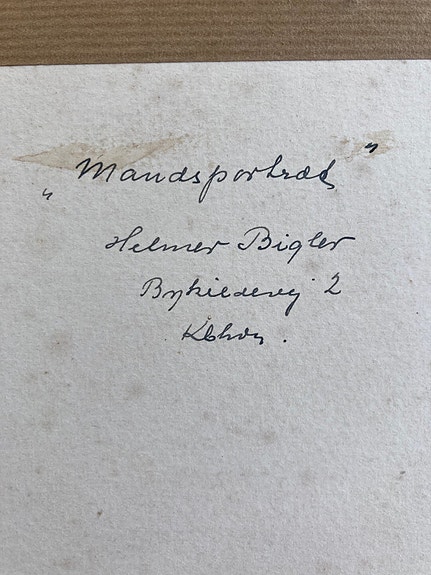 „Mandsportræt"
Helmer Bigler
2
Kbhvn.